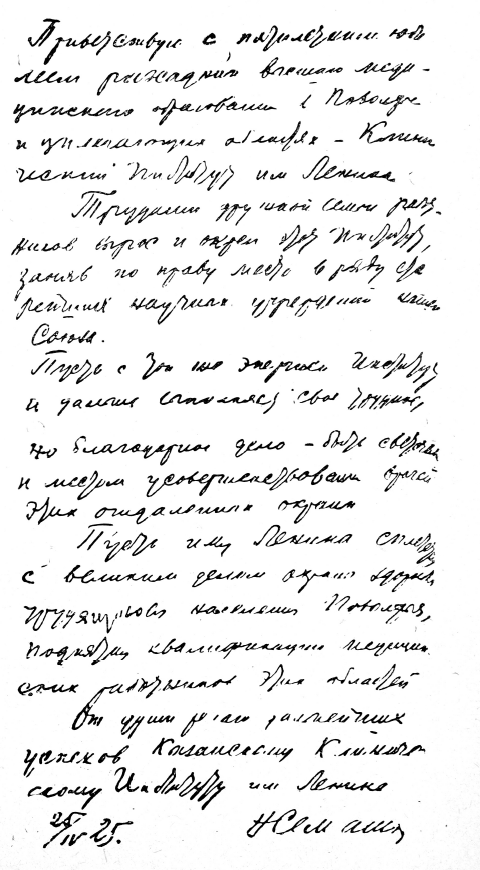 Приветствую с пятилетним юби
леем рассадник высшего меди-
цинского образования в Поволжье
и прилегающих областях - Клини
ческий Институт им Ленина.
Трудами дружной семьи работ-
ников вырос и окреп этот Институт,
заняв по праву место в ряду ста
рейших научных учреждений нашего
Союза.
Пусть с той же энергией Институт
и дальше выполняет свое трудное,
но благодарное дело - быть светочем
и местом усовершенствования врачей
этих отдаленных окраин
Пусть имя Ленина сплетется
с великим делом охраны здоровья
трудящегося населения Поволжья,
поднятия квалификации медицин
ских работников этих областей
От души желаю дальнейших
успехов Казанскому Клиниче
скому Институту им Ленина
25/IV 25. Н Семашко